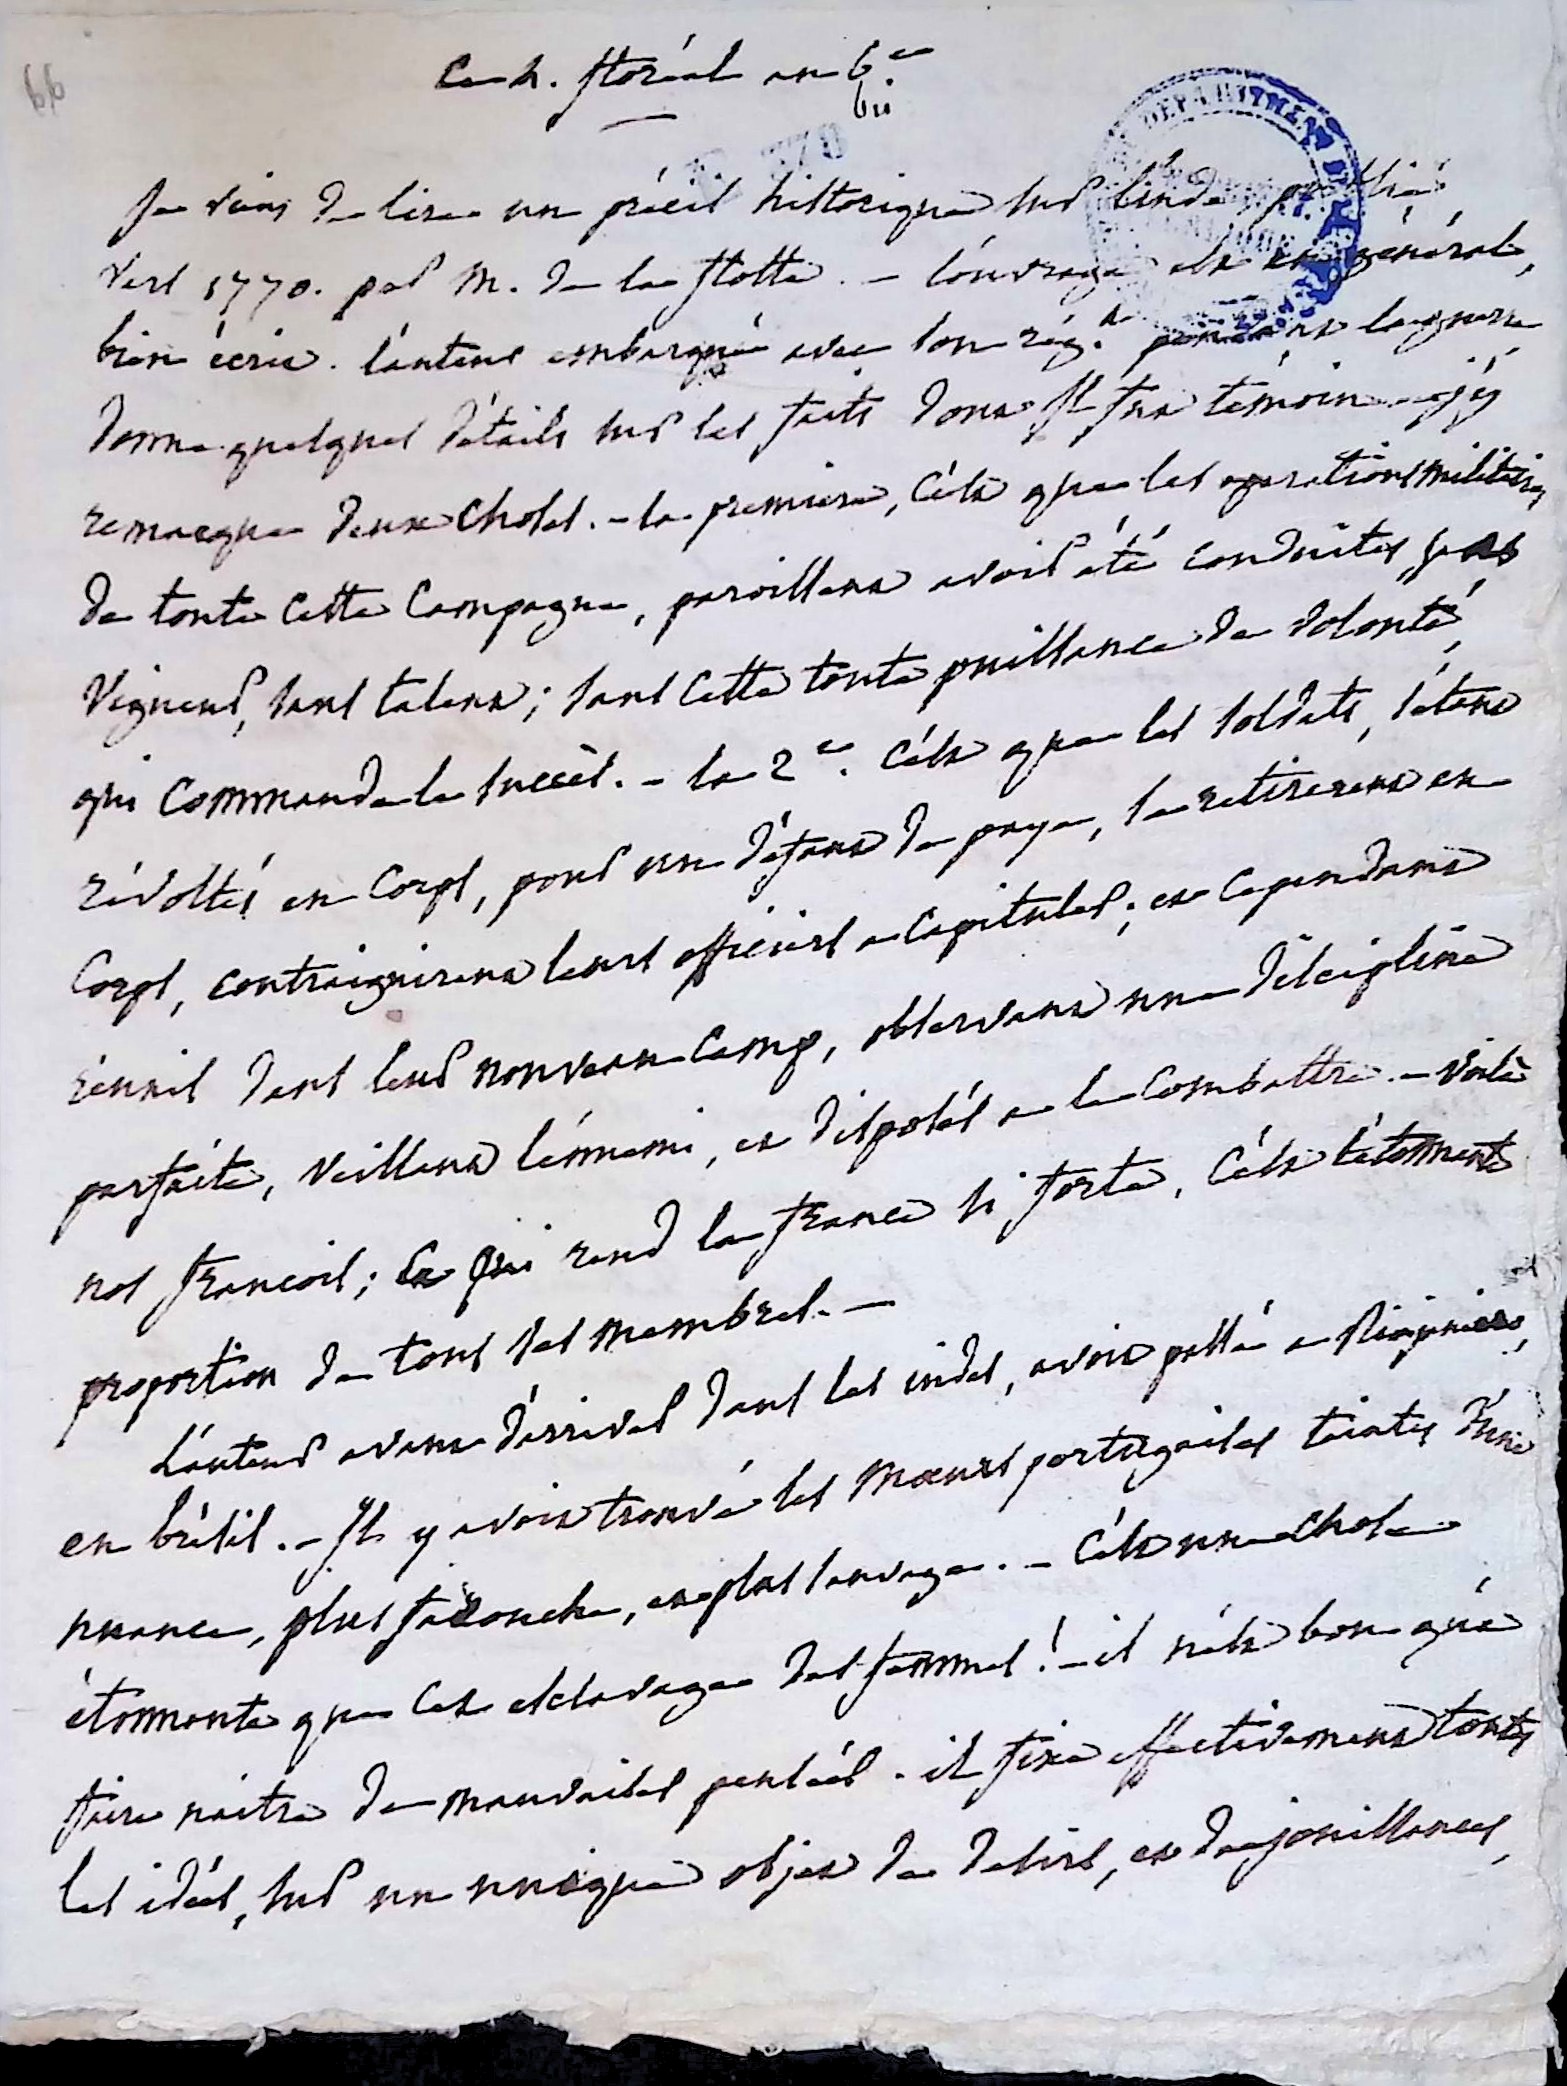 66
Ce 4. floréal an 6.e
bis
Je viens de lire un précis historique sur l'inde, publié
vers 1770. par M. de la flotte. - l'ouvrage est en général,
bien écrit. l'auteur embarqué avec son rég.t pendant la guerre
donne quelques détails sur les faits dont Il fut témoin. - j'ÿ
remarque deux choses. - la premiere, c'est que les operations militaires
de toute cette Campagne, paroissent avoir été conduites, sans
vigueur, sans talent; sans cette toute puissance de volonté,
qui commande le succès. - la 2.e c'est que les soldats, s'étant
révoltés en Corps, pour un défaut de paye, se retirerent en
Corps, contraignirent leurs officiers a capituler; et cependant
réunis dans leur nouveau Camp, observant une discipline
parfaite, veillant l'énnemi, et disposés a le combattre. - voilà
nos françois; Ce qui rend la france si forte, c'est l'étonnante
proportion de tous ses membres. -
L'auteur avant d'arriver dans les indes, avoit passé a Riojaneiro,
en brésil. - Il y avoit trouvé les mœurs portugaises teintes d'une
nuance, plus farouche, et plus sauvage. - c'est une chose
étonnante que cet esclavage des femmes! - il n'est bon qu'à
faire naitre de mauvaises pensées. il fixe effectivement toutes
les idées, sur un unique objet de desirs, et de jouissances,